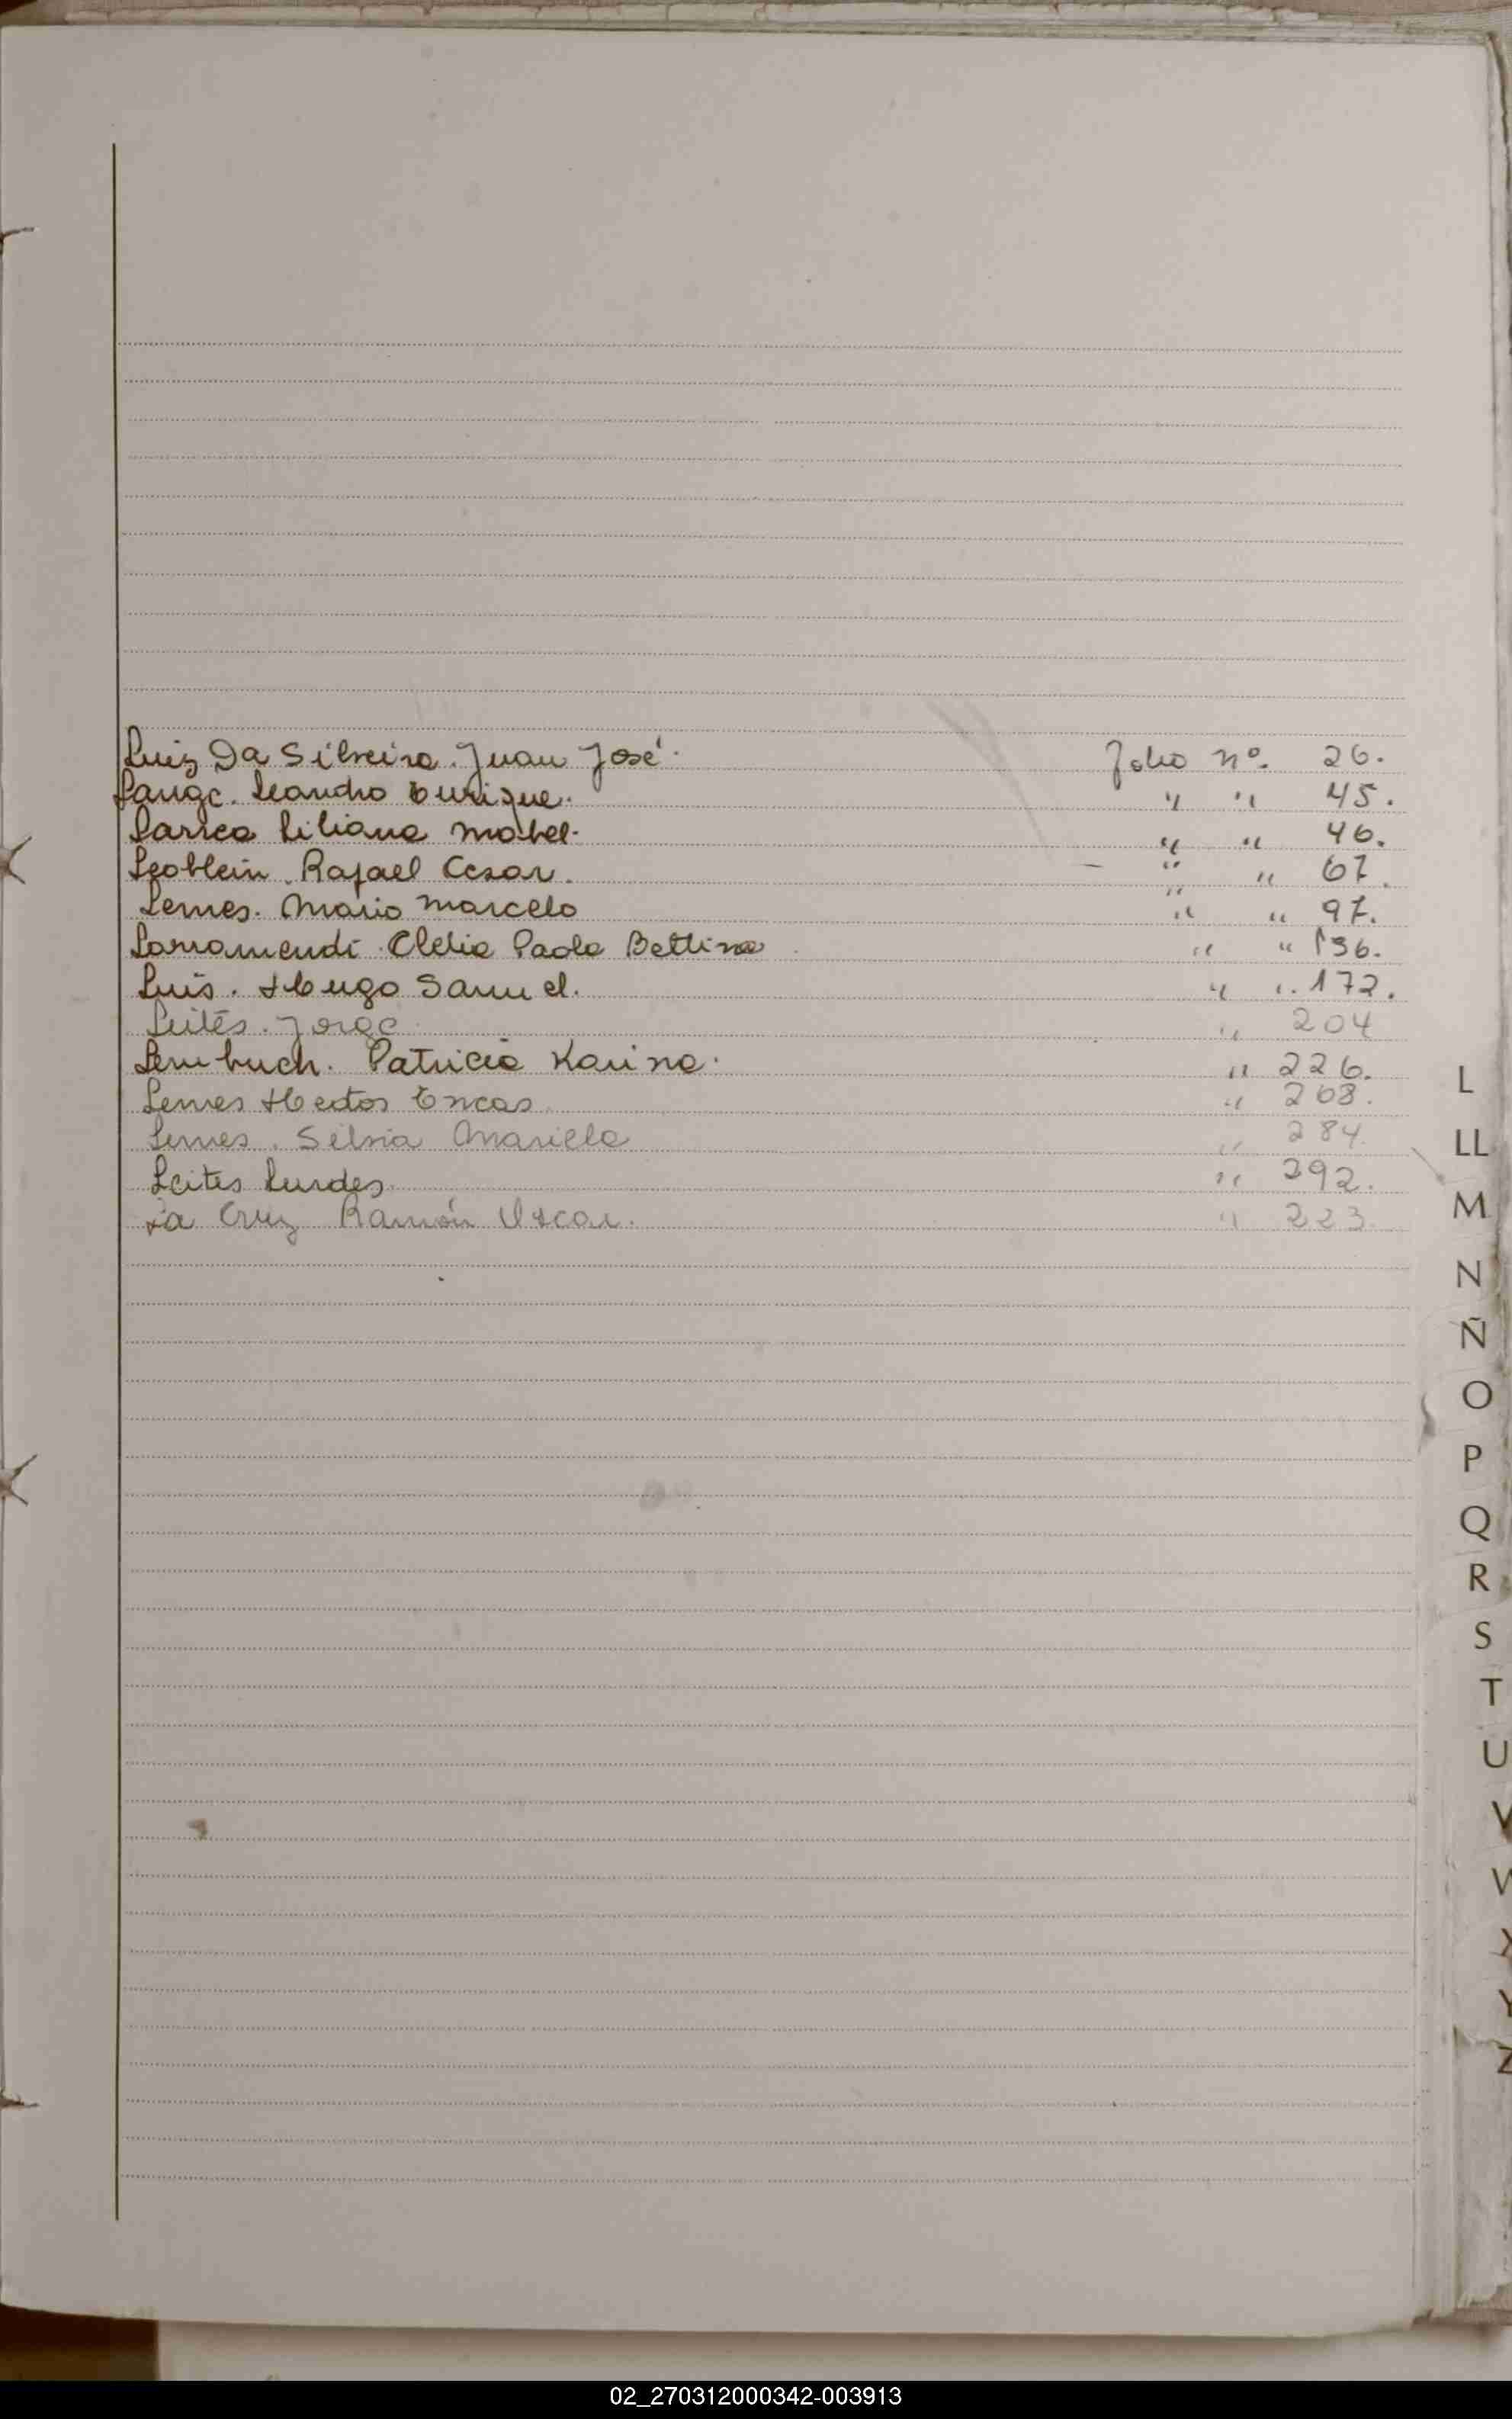 Luiz Da Silveira. Juan José. Folio nº. 26.
Lange. Leandro Enrique. " " 45.
Larrea Liliana Mabel. " " 46.
Leoblein. Rafael Cesar. — " " 67.
Lemes. Mario Marcelo " " 97.
Larramendi. Clelia Paola Bettina " " 136.
Luis. Hugo Samuel. " " 172.
Leites. Jorge " 204
Lembuch. Patricia Karina. " 226.
Lemes Hector Eneas " 268.
Lemes. Silvia Mariela " 284.
Leites Lurdes " 292.
La Cruz Ramón Oscar. " 223.
L
LL
M
N
Ñ
O
P
Q
R
S
T
U
V
W
X
Y
Z
02_270312000342-003913